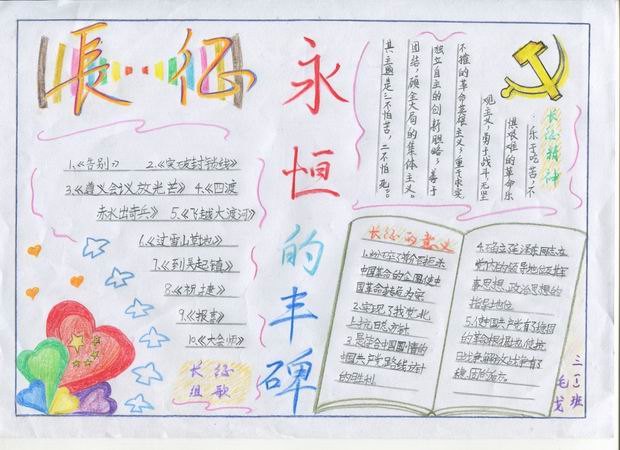 長征
永恒的丰碑
1.《告别》 2.《突破封锁线》
3.《遵义会议放光芒》 4.《四渡
赤水出奇兵》 5.《飞越大渡河》
6.《过雪山草地》
7.《到吴起镇》
8.《祝捷》
9.《报喜》
10.《大会师》
长征
组歌
长征精神
乐于吃苦,不
惧艰难的革命乐
观主义;勇于战斗,无坚
不摧的革命英雄主义;重于求实,
独立自主的创新胆略;善于
团结,顾全大局的集体主义。
其主题是:一不怕苦,二不怕死。
长征的意义
中国革命的企图,使中
国革命转危为安
2.实现了我党北
上抗日方针
3.是符合中国国情的
中国共产党路线
的胜利
4.确立了毛泽东同志在
党内的领导地位及其军
事思想、政治思想的
指导地位
5.使中国共产党有了稳固
的革命根据地,使抗
日战争解放战争有了
稳固的后方。
三(1)班
毛戈